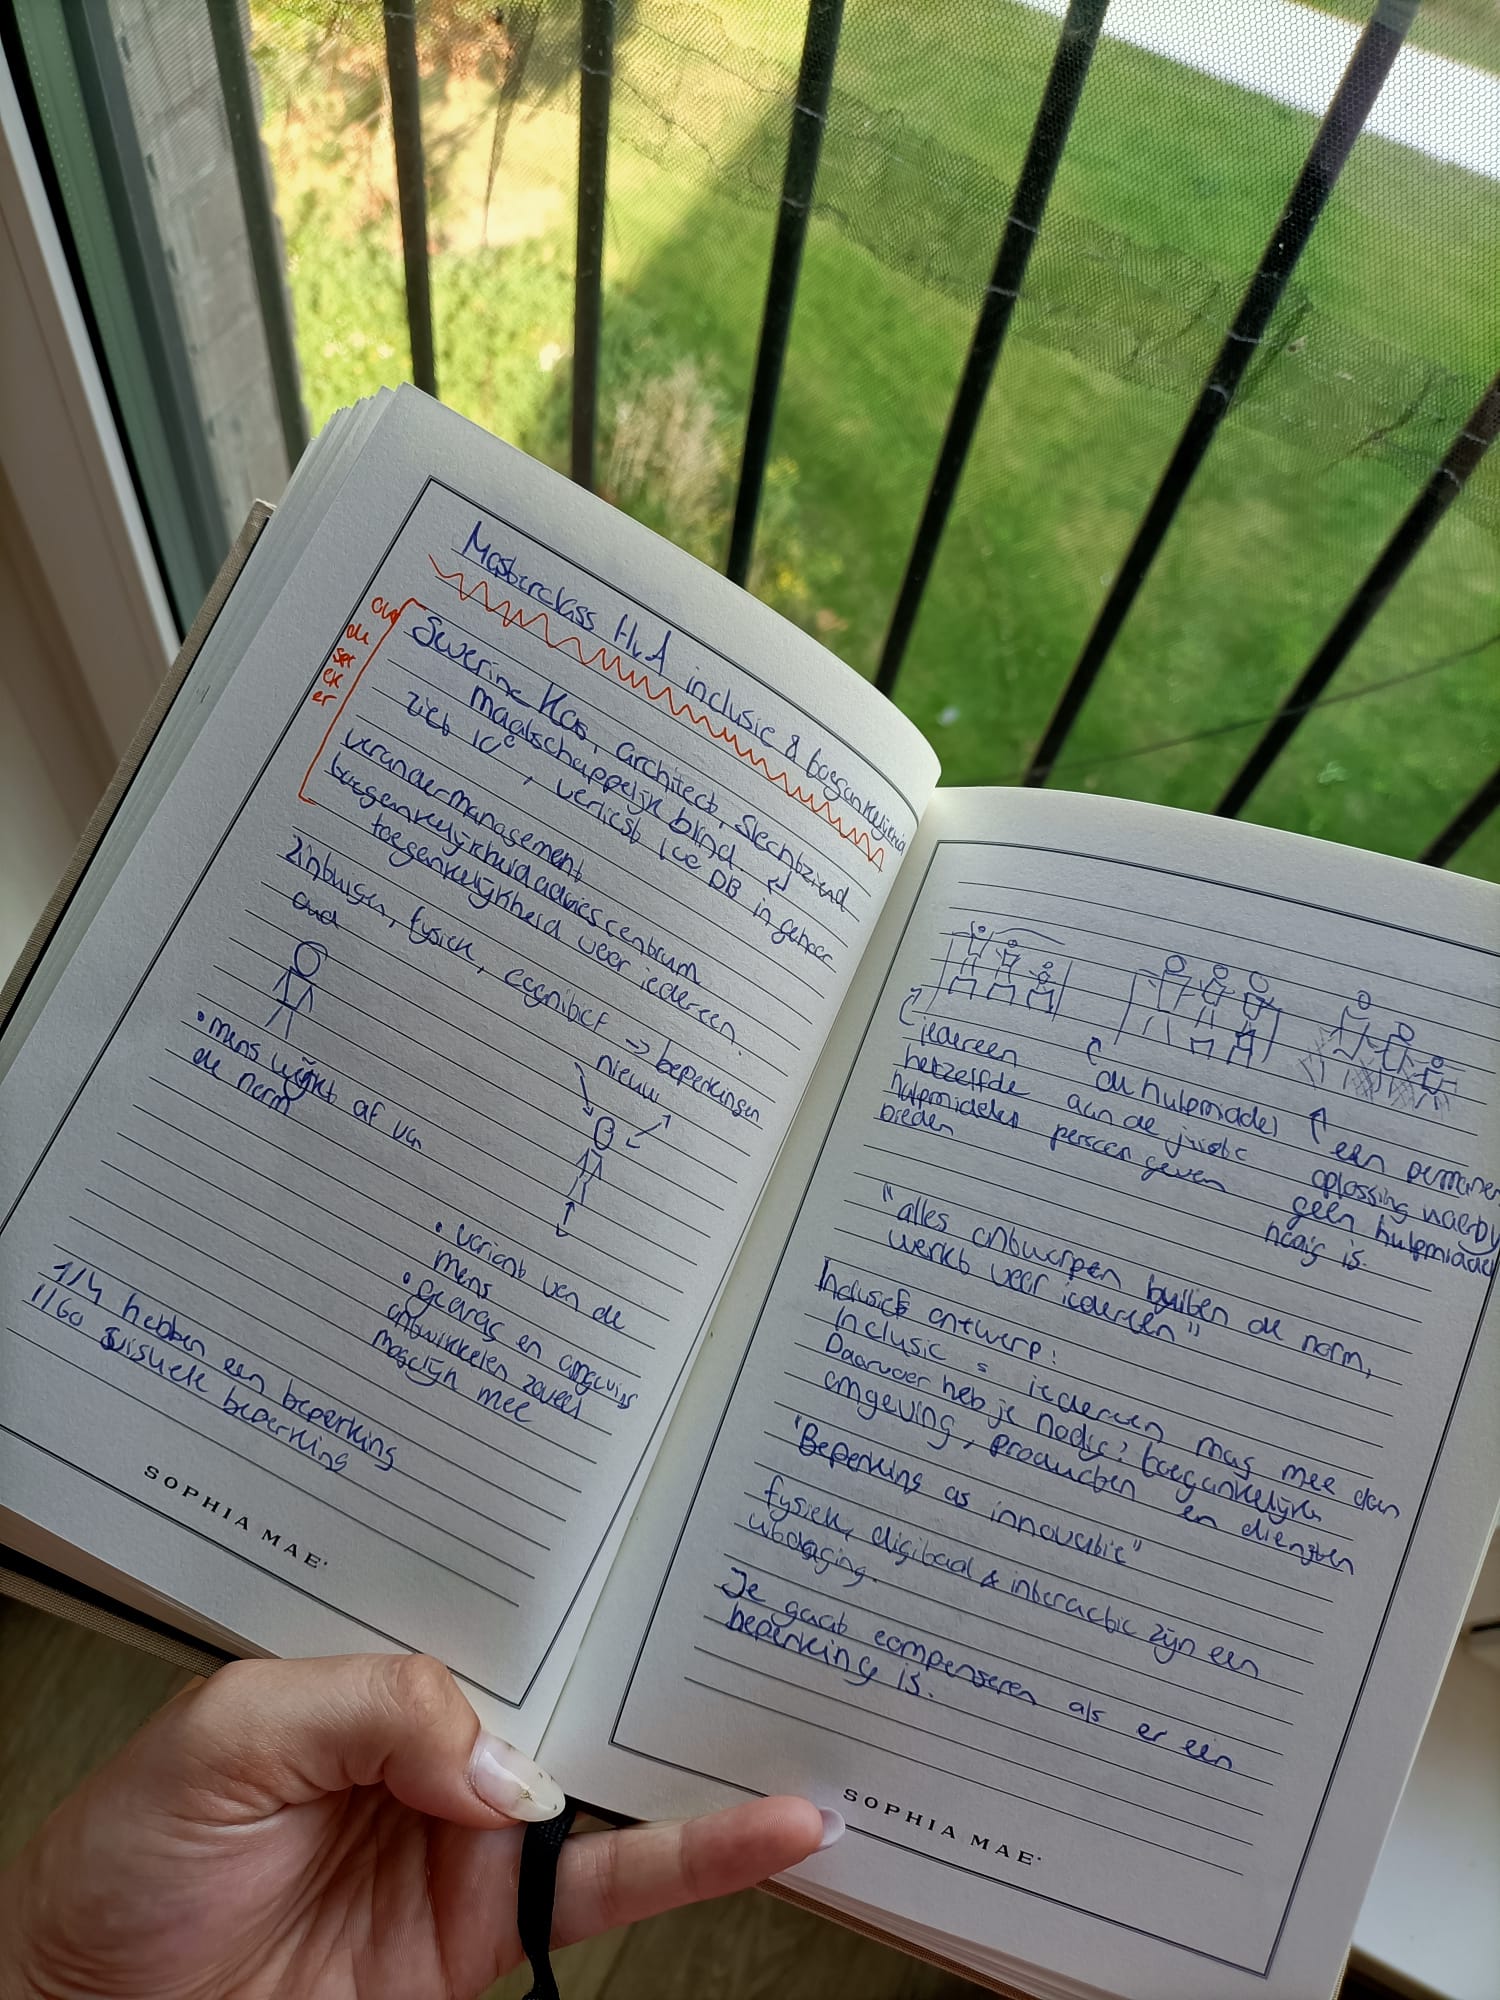 Masterclass HvA inclusie & toegankelijkheid
over de spreker
Kas, architect, slechtziend
maatschappelijk blind
ziet 10%, verliest 100 DB in gehoor
verandermanagement
toegankelijkheidadviescentrum
toegankelijkheid voor iedereen.
Zintuigen, fysiek, cognitief → beperkingen
oud
nieuw
• mens wijkt af van
de norm
• variant van de
mens
• gedrag en omgeving
ontwikkelen zoveel
mogelijk mee
1/4 hebben een beperking
1/60 visuele beperking
SOPHIA MAE
iedereen
hetzelfde
hulpmiddelen
bieden
de hulpmiddel
aan de juiste
persoon geven
een permanen
oplossing waarby
geen hulpmiddel
nodig is.
"alles ontwerpen buiten de norm,
werkt voor iedereen"
Inclusief ontwerp:
Inclusie = iedereen mag mee doen
Daarvoor heb je nodig: toegankelijke
omgeving, producten en diensten
"Beperking as innovatie"
fysiek, digitaal & interactie zijn een
uitdaging.
Je gaat compenseren als er een
beperking is.
SOPHIA MAE